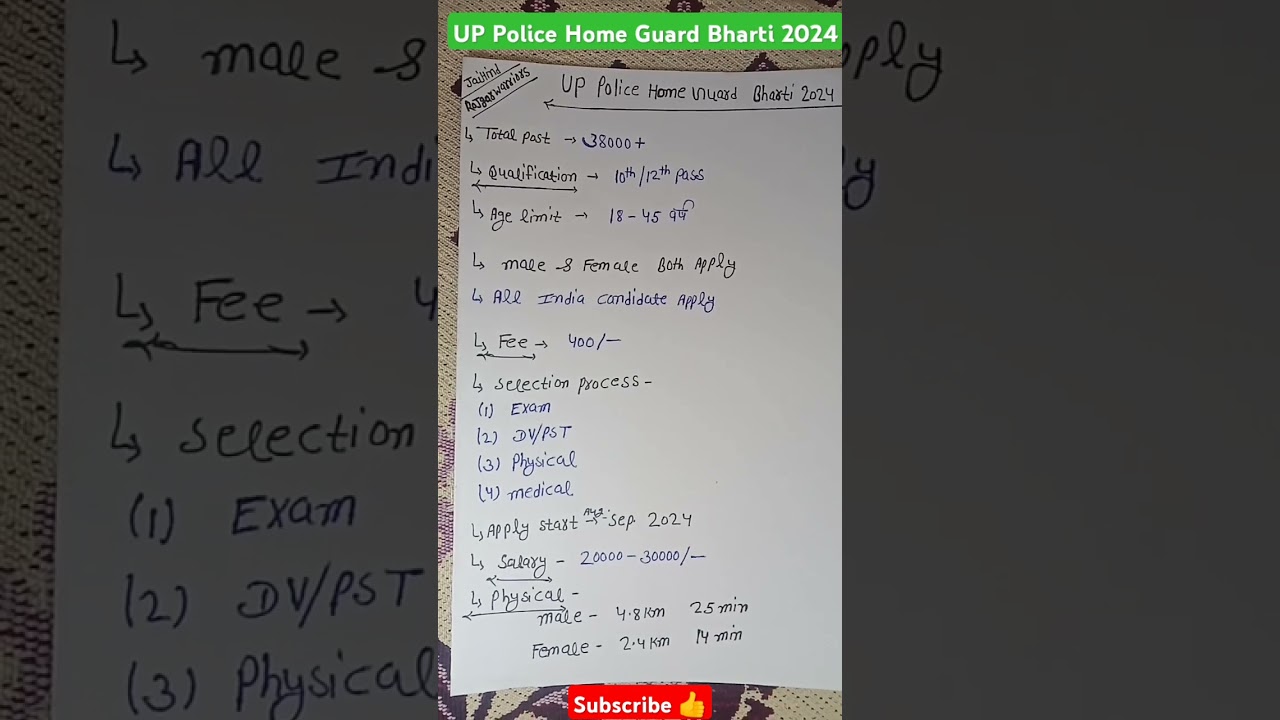 UP Police Home Guard Bharti 2024
Jaihind
Rojgarwarriors
UP Police Home Guard Bharti 2024
↳ Total post → 38000+
↳ Qualification → 10th/12th pass
↳ Age limit → 18-45 वर्ष
↳ male & Female Both Apply
↳ All India candidate Apply
↳ Fee → 400/-
↳ selection process -
(1) Exam
(2) DV/PST
(3) Physical
(4) medical
↳ Apply start → Aug - Sep 2024
↳ Salary - 20000-30000/-
↳ Physical -
male - 4.8 Km 25 min
Female - 2.4 Km 14 min
Subscribe 👍
male &
All Indi
Fee → 4
selection
(1) Exam
(2) DV/PST
(3) Physical
pply
y